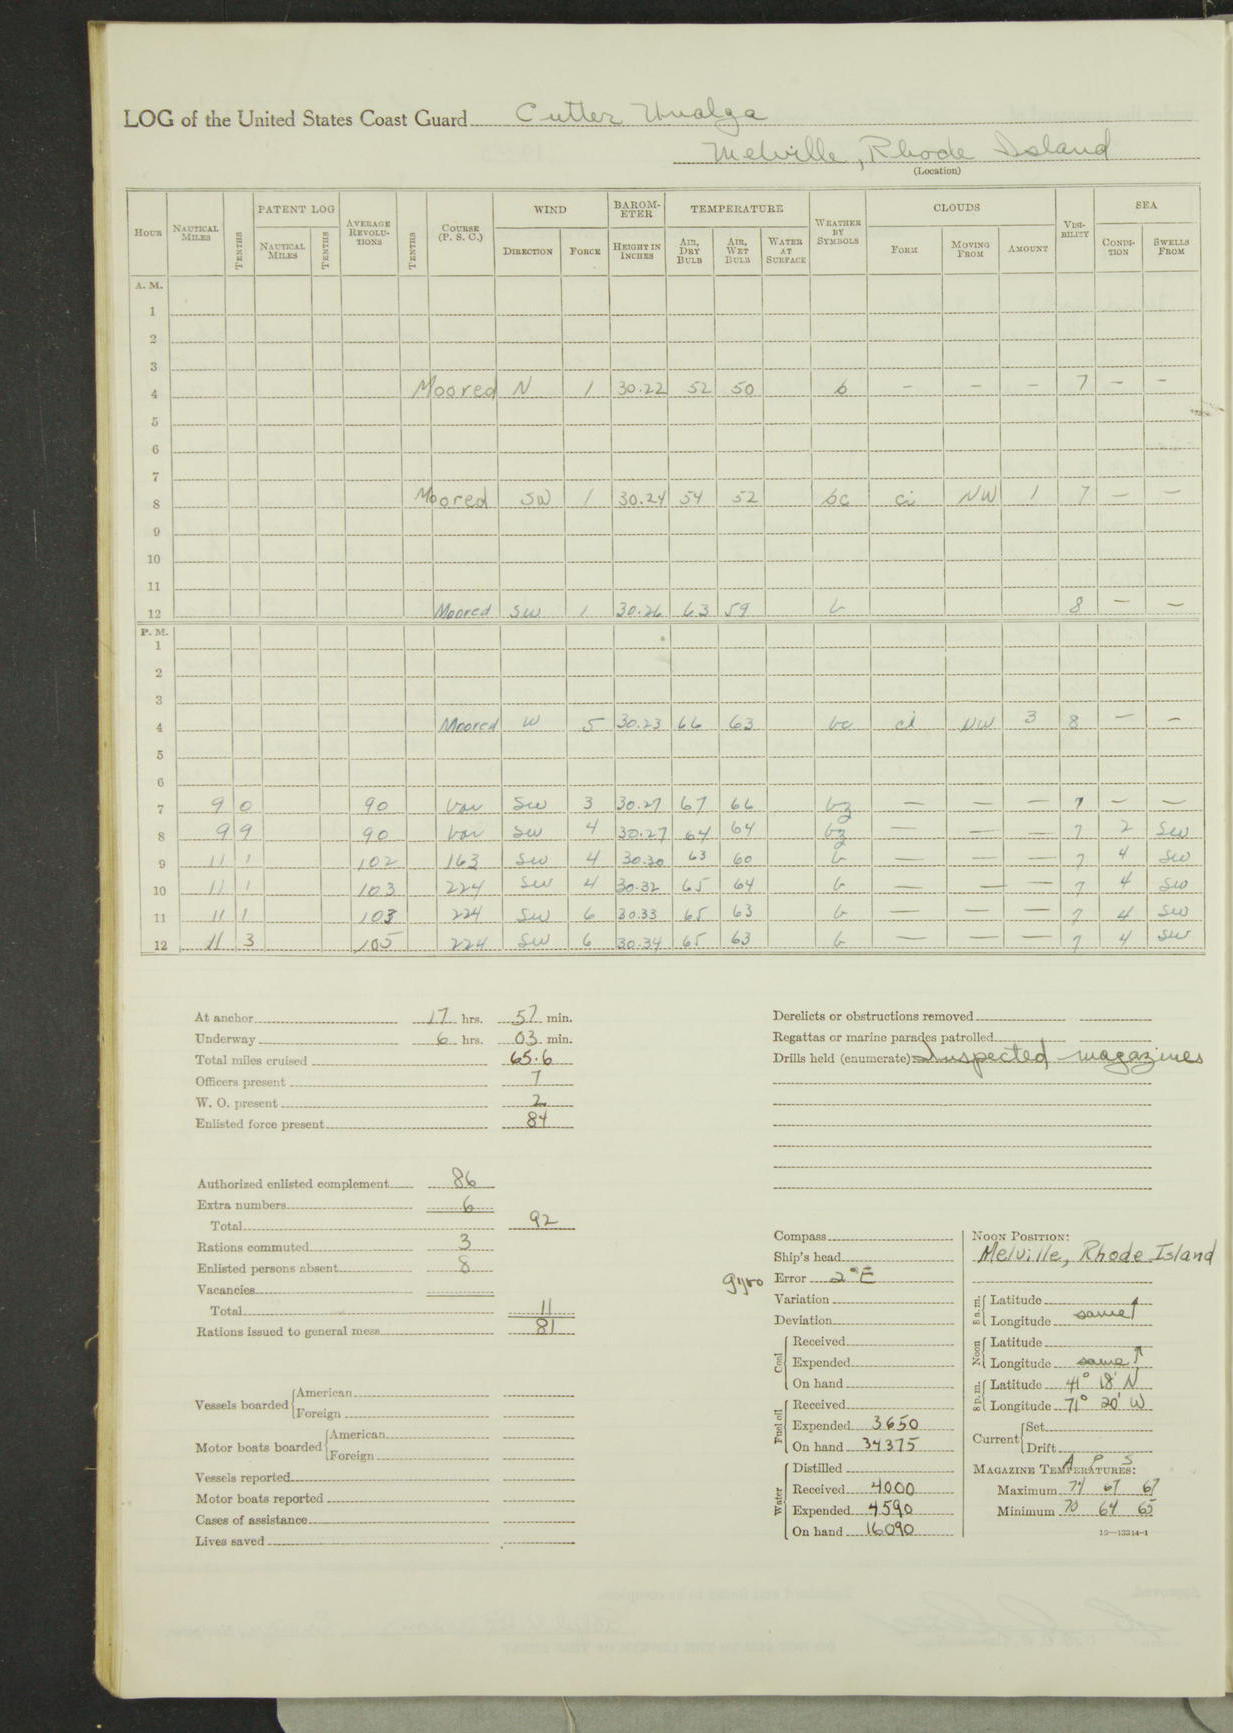 LOG of the United States Coast Guard Cutter Unalga
Melville, Rhode Island
(Location)
HOUR NAUTICAL MILES TENTHS PATENT LOG NAUTICAL MILES TENTHS AVERAGE REVOLUTIONS TENTHS COURSE (P. S. C.) WIND DIRECTION FORCE BAROMETER HEIGHT IN INCHES TEMPERATURE AIR, DRY BULB AIR, WET BULB WATER AT SURFACE WEATHER BY SYMBOLS CLOUDS FORM MOVING FROM AMOUNT VISIBILITY SEA CONDITION SWELLS FROM
A. M.
1
2
3
4 Moored N 1 30.22 52 50 b - - - 7 - -
5
6
7
8 Moored SW 1 30.24 54 52 bc ci NW 1 7 - -
9
10
11
12 Moored SW 1 30.26 63 59 b 8 - -
P. M.
1
2
3
4 Moored W 5 30.23 66 63 bc ci NW 3 8 - -
5
6
7 9 0 90 var SW 3 30.27 67 66 bz - - - 7 - -
8 9 9 90 var SW 4 30.27 64 64 bz - - - 7 2 SW
9 11 1 102 163 SW 4 30.30 63 60 b - - - 7 4 SW
10 11 1 103 224 SW 4 30.32 65 64 b - - - 7 4 SW
11 11 1 103 224 SW 6 30.33 65 63 b - - - 7 4 SW
12 11 3 105 224 SW 6 30.34 65 63 b - - - 7 4 SW
At anchor 17 hrs. 57 min.
Underway 6 hrs. 03 min.
Total miles cruised 65.6
Officers present 7
W. O. present 2
Enlisted force present 84
Authorized enlisted complement 86
Extra numbers 6
Total 92
Rations commuted 3
Enlisted persons absent 8
Vacancies
Total 11
Rations issued to general mess 81
Vessels boarded American
Foreign
Motor boats boarded American
Foreign
Vessels reported
Motor boats reported
Cases of assistance
Lives saved
Derelicts or obstructions removed
Regattas or marine parades patrolled
Drills held (enumerate) Inspected magazines
Compass
Ship's head
gyro Error 2°E
Variation
Deviation
Coal Received
Expended
On hand
Fuel oil Received
Expended 3650
On hand 34375
Water Distilled
Received 4000
Expended 4590
On hand 16090
NOON POSITION:
Melville, Rhode Island
8 a.m. Latitude
Longitude same ↑
Noon Latitude
Longitude same ↑
8 p.m. Latitude 41° 18' N
Longitude 71° 20' W
Current Set
Drift
A P S
MAGAZINE TEMPERATURES:
Maximum 74 67 67
Minimum 70 64 65
16—13314-1